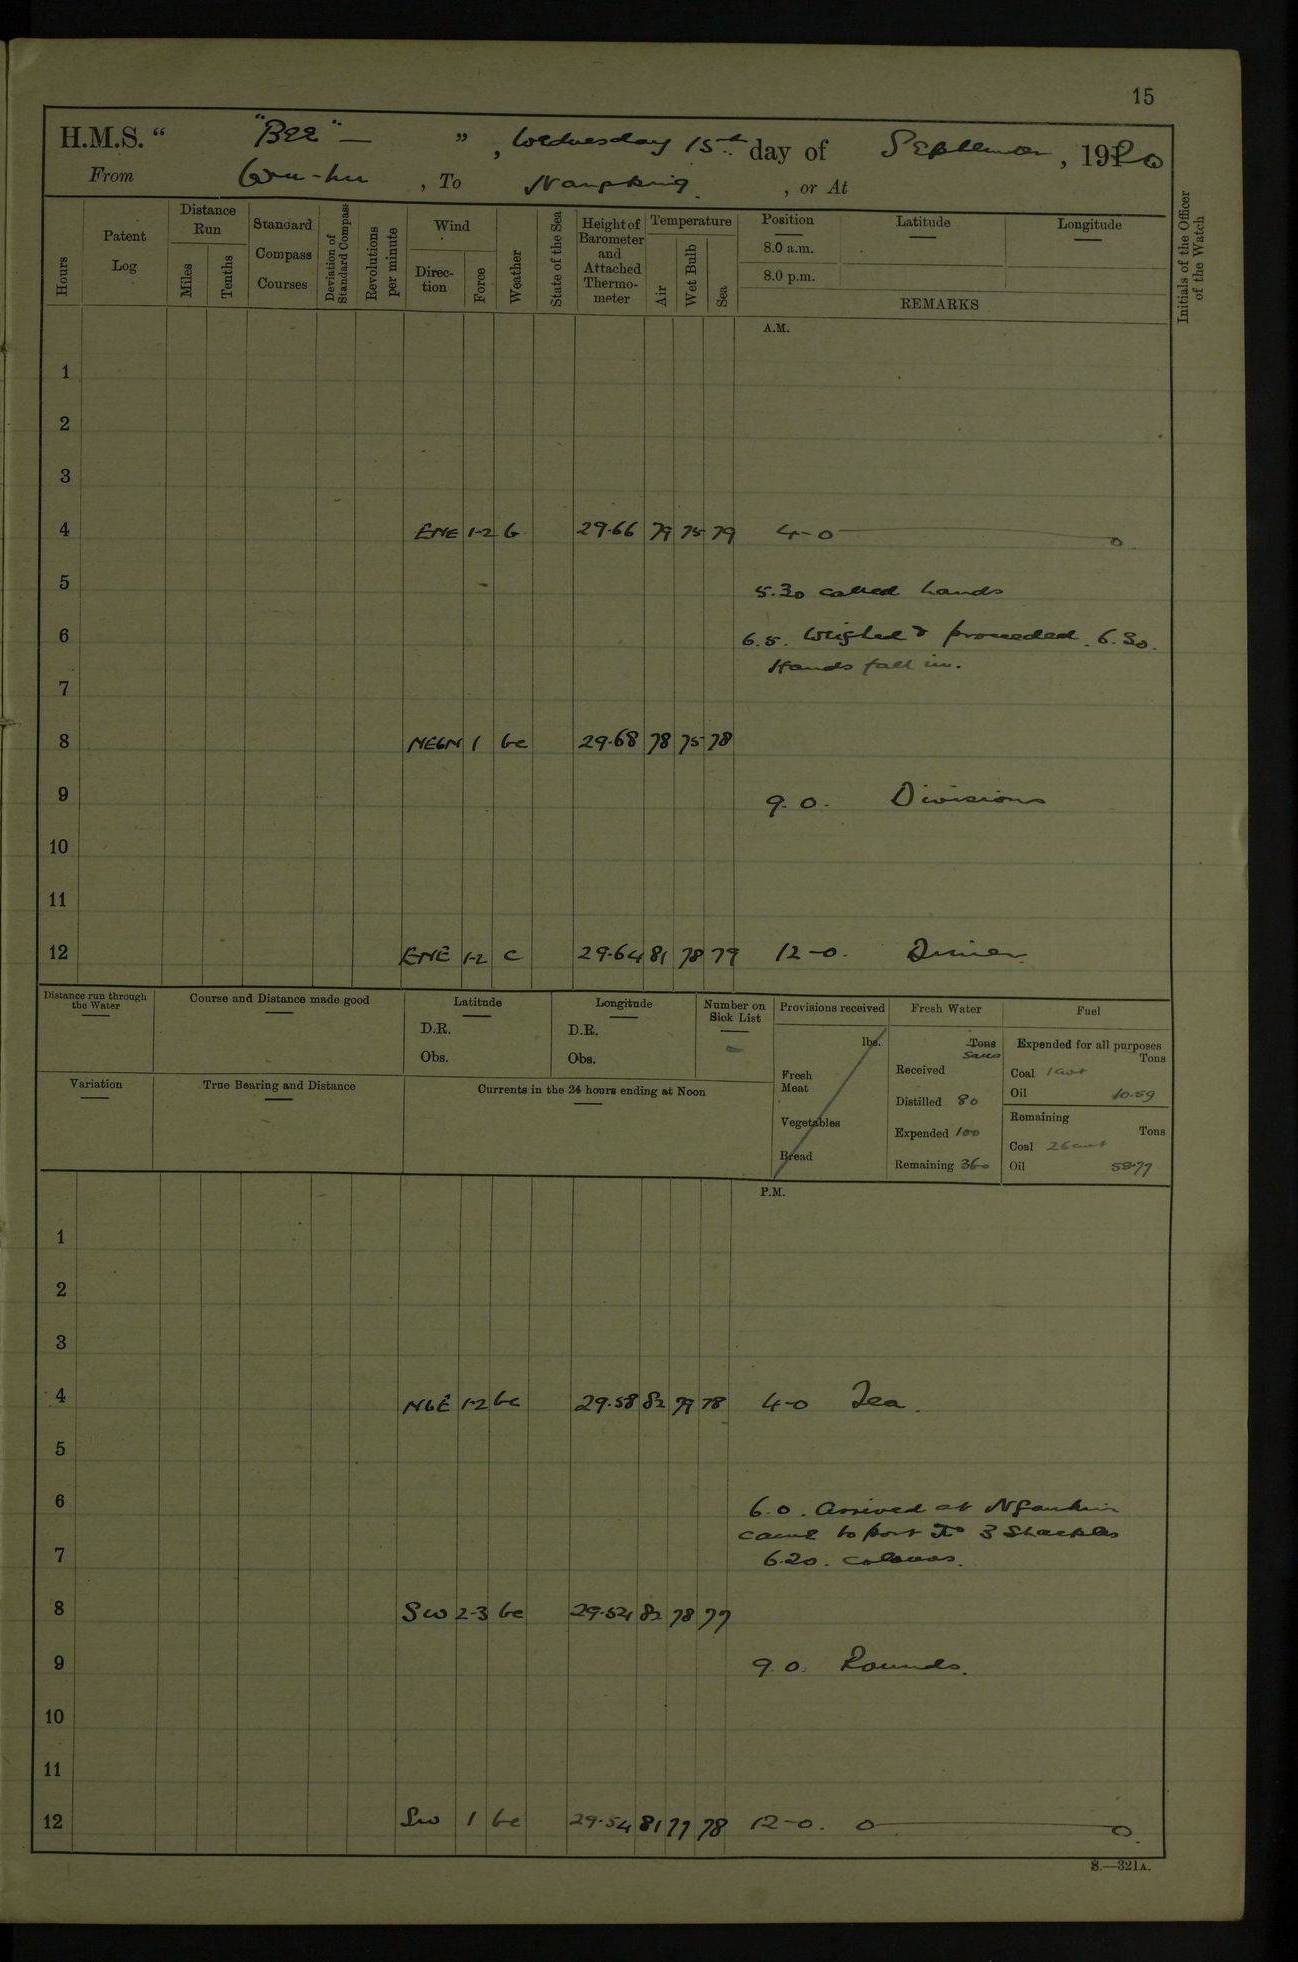 15
H.M.S. " "Bee" — ", Wednesday 15th day of September, 1920
From Wu-hu, To Nanpking, or At
Hours
Patent Log
Distance Run
Miles
Tenths
Standard Compass Courses
Deviation of Standard Compass
Revolutions per minute
Wind
Direction
Force
Weather
State of the Sea
Height of Barometer and Attached Thermometer
Temperature
Air
Wet Bulb
Sea
Position
8.0 a.m.
8.0 p.m.
Latitude
Longitude
REMARKS
Initials of the Officer of the Watch
A.M.
1
2
3
4 ENE 1-2 b 29.66 79 75 79 4-0 — o
5 5.30 called hands
6 6.5. Weighed & proceeded. 6.30.
Hands fall in.
7
8 NEbN 1 bc 29.68 78 75 78
9 9.0. Divisions
10
11
12 ENE 1-2 c 29.64 81 78 79 12-0. Dinner
Distance run through the Water
Course and Distance made good
Latitude
D.R.
Obs.
Longitude
D.R.
Obs.
Number on Sick List
—
Variation
True Bearing and Distance
Currents in the 24 hours ending at Noon
Provisions received
lbs.
Fresh Meat
Vegetables
Bread
Fresh Water
Tons
Received
Distilled 80
Expended 100
Remaining 360
Fuel
Expended for all purposes
Tons
Coal 1 cwt
Oil 10.59
Remaining
Tons
Coal 26 cwt
Oil 58.77
P.M.
1
2
3
4 NbE 1-2 bc 29.58 82 79 78 4-0 Tea.
5
6 6.0. Arrived at
came to port 3 Shackles
7 6.20. Colours.
8 SW 2-3 bc 29.54 82 78 77
9 9.0. Rounds.
10
11
12 SW 1 bc 29.54 81 77 78 12-0. o — o
S.—321A.